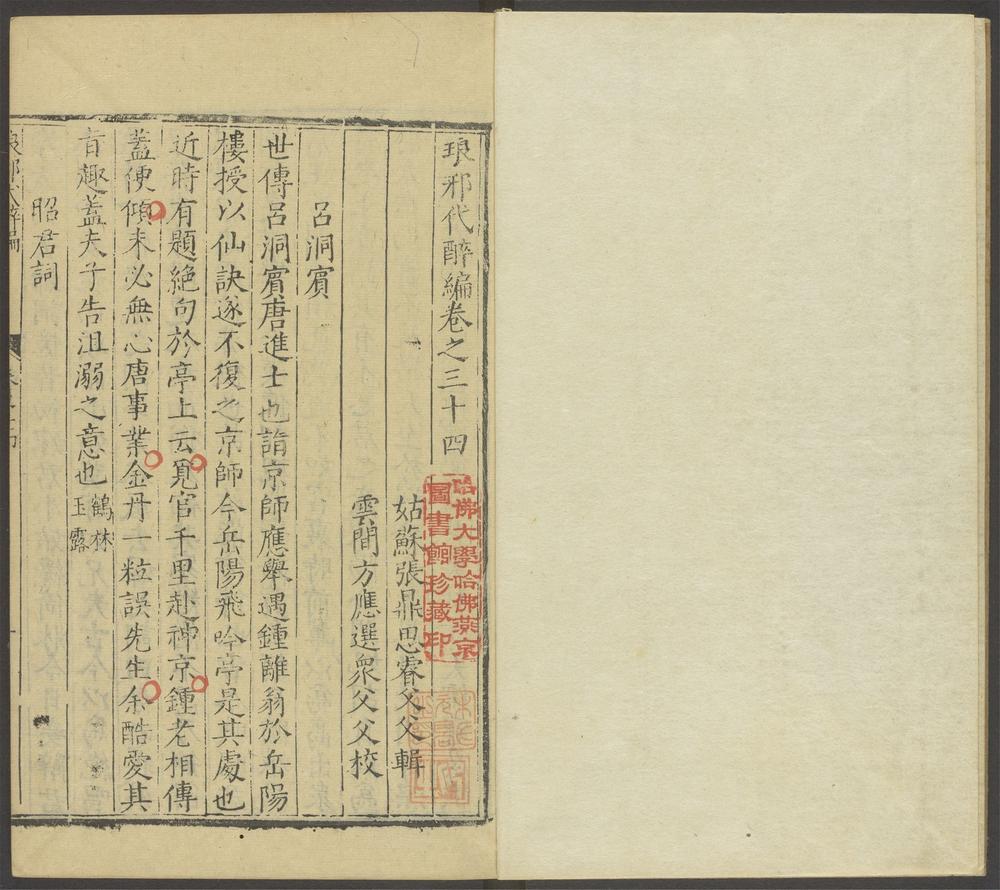 琅邪代醉編卷之三十四
姑蘇張鼎思睿父父輯
雲間方應選衆父父校
呂洞賓
世傳呂洞賓唐進士也詣京師應舉遇鍾離翁於岳陽
樓授以仙訣遂不復之京師今岳陽飛吟亭是其處也
近時有題絕句於亭上云覓官千里赴神京鍾老相傳
蓋便傾未必無心唐事業金丹一粒誤先生余酷愛其
旨趣蓋夫子告沮溺之意也鶴林玉露
昭君詞
哈佛大學哈佛燕京
圖書館珍藏印